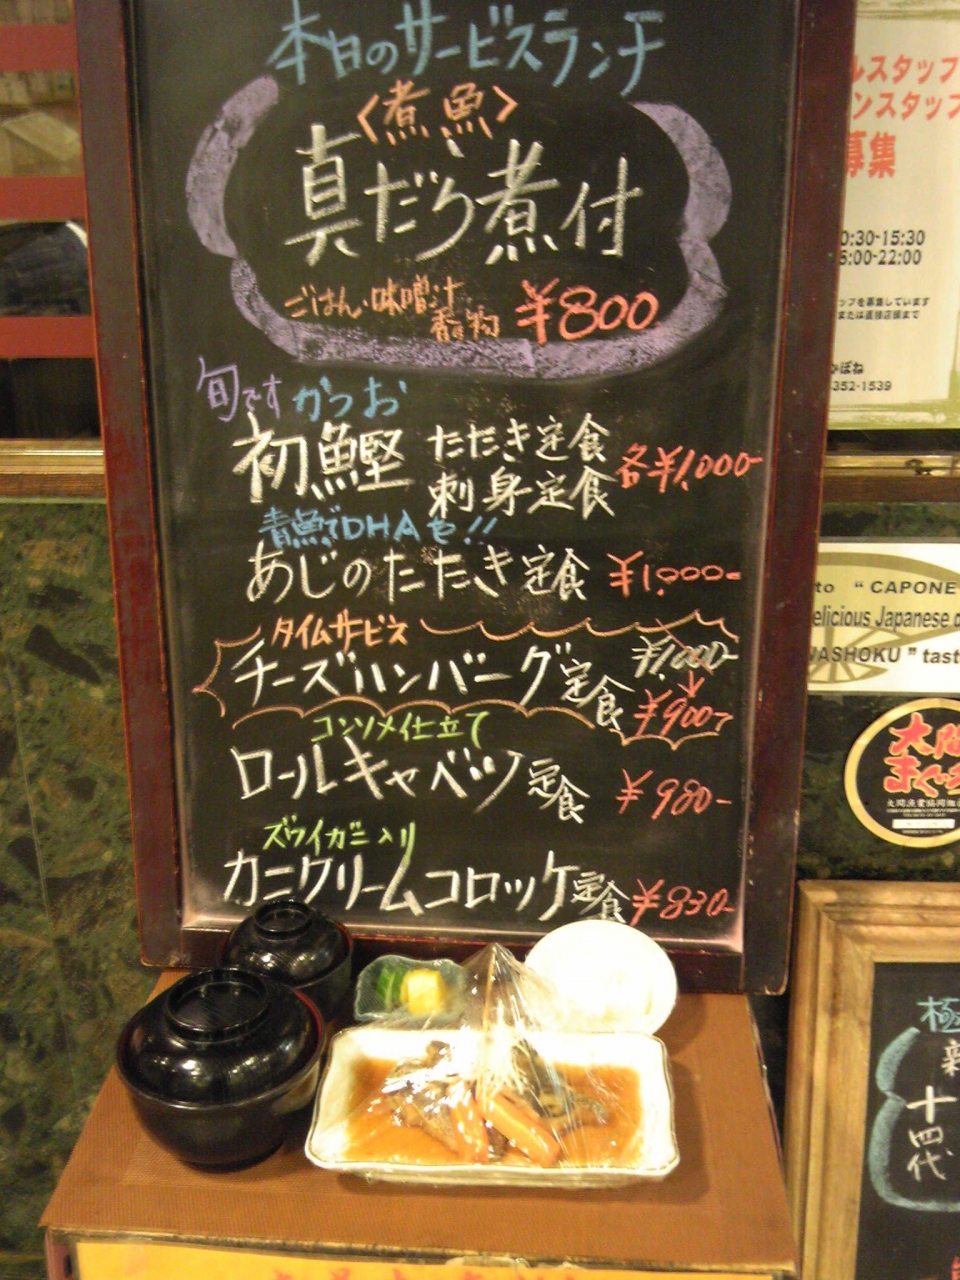 本日のサービスランチ
〈煮魚〉
真だら煮付
ごはん・味噌汁
香の物
¥800
旬です かつお
初鰹 たたき定食
刺身定食 各¥1,000-
青魚でDHAを!!
あじのたたき定食 ¥1,000-
タイムサービス
チーズハンバーグ定食 ¥1,000-
¥900-
コンソメ仕立て
ロールキャベツ定食 ¥980-
ズワイガニ入り
カニクリームコロッケ定食 ¥830-
ルスタッフ
ンスタッフ
募集
0:30-15:30
5:00-22:00
ッフを募集しています
または直接店頭まで
352-1539
to " CAPONE
elicious Japanese
WASHOKU " tast
大間
まぐろ
十四代